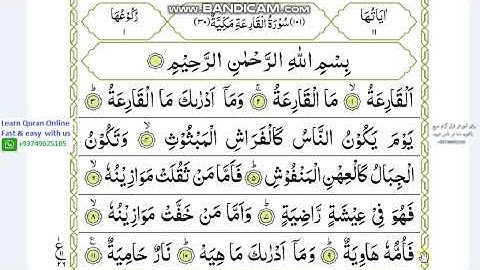 www.BANDICAM.com
اٰيَاتُهَا ١١
(١٠١) سُوْرَةُ الْقَارِعَةِ مَكِّيَّةٌ (٣٠)
رُكُوْعُهَا ١
بِسْمِ اللّٰهِ الرَّحْمٰنِ الرَّحِيْمِ
اَلْقَارِعَةُ ۝١ مَا الْقَارِعَةُ ۝٢ وَمَاۤ اَدْرٰىكَ مَا الْقَارِعَةُ ۝٣
يَوْمَ يَكُوْنُ النَّاسُ كَالْفَرَاشِ الْمَبْثُوْثِ ۝٤ وَتَكُوْنُ
الْجِبَالُ كَالْعِهْنِ الْمَنْفُوْشِ ۝٥ فَاَمَّا مَنْ ثَقُلَتْ مَوَازِيْنُهٗ ۝٦
فَهُوَ فِيْ عِيْشَةٍ رَّاضِيَةٍ ۝٧ وَاَمَّا مَنْ خَفَّتْ مَوَازِيْنُهٗ ۝٨
فَاُمُّهٗ هَاوِيَةٌ ۝٩ وَمَاۤ اَدْرٰىكَ مَا هِيَهْ ۝١٠ نَارٌ حَامِيَةٌ ۝١١
Learn Quran Online
Fast & easy with us
+93749625105
ع
١١
٢٦